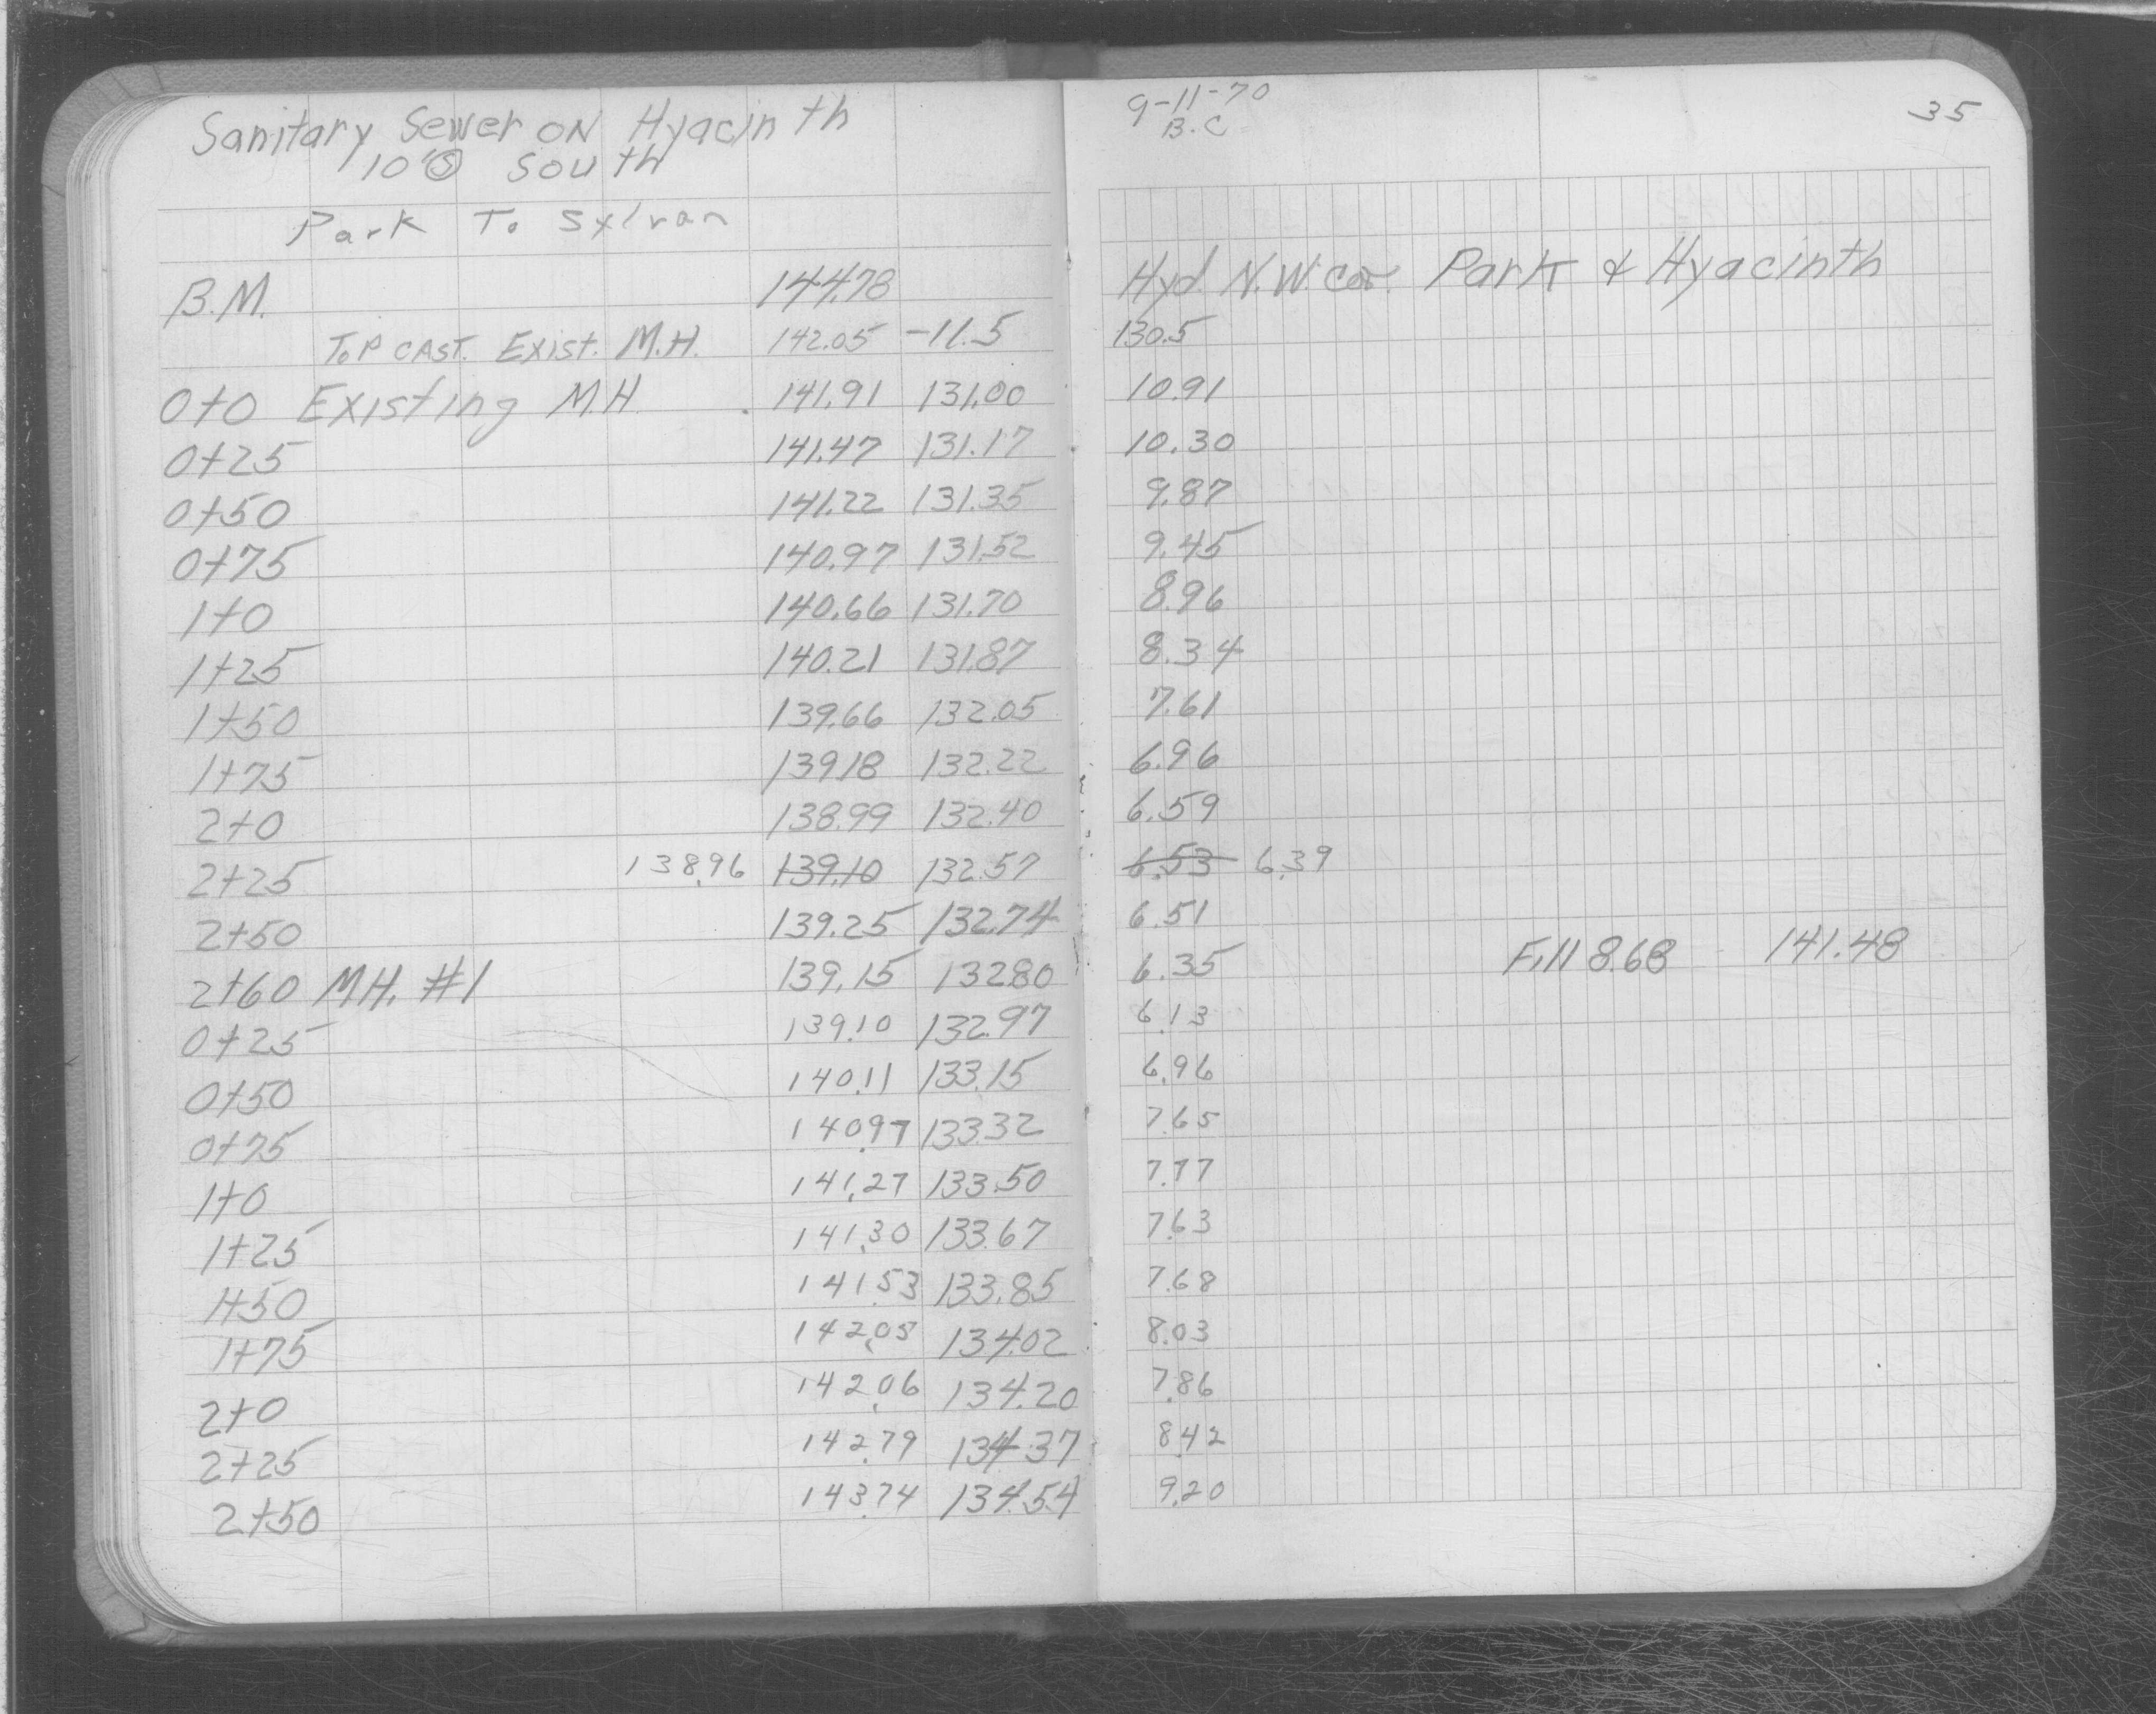 Sanitary Sewer ON Hyacinth
10' Ⓢ South
Park To Sylvan
B.M. 144.78
TOP CAST. Exist. M.H. 142.05 -11.5
0+0 Existing M.H. 141.91 131.00
0+25 141.47 131.17
0+50 141.22 131.35
0+75 140.97 131.52
1+0 140.66 131.70
1+25 140.21 131.87
1+50 139.66 132.05
1+75 139.18 132.22
2+0 138.99 132.40
2+25 138.96 139.10 132.57
2+50 139.25 132.74
2+60 MH. #1 139.15 132.80
0+25 139.10 132.97
0+50 140.11 133.15
0+75 140.97 133.32
1+0 141.27 133.50
1+25 141.30 133.67
1+50 141.53 133.85
1+75 142.05 134.02
2+0 142.06 134.20
2+25 142.79 134.37
2+50 143.74 134.54
9-11-70
B.C
35
Hyd. N.W. Cor. Park & Hyacinth
130.5
10.91
10.30
9.87
9.45
8.96
8.34
7.61
6.96
6.59
6.53 6.39
6.51
6.35 Fill 8.68 141.48
6.13
6.96
7.65
7.77
7.63
7.68
8.03
7.86
8.42
9.20